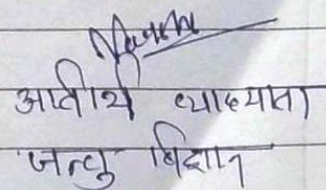 आतीथि व्याख्याता
जन्तु विज्ञान